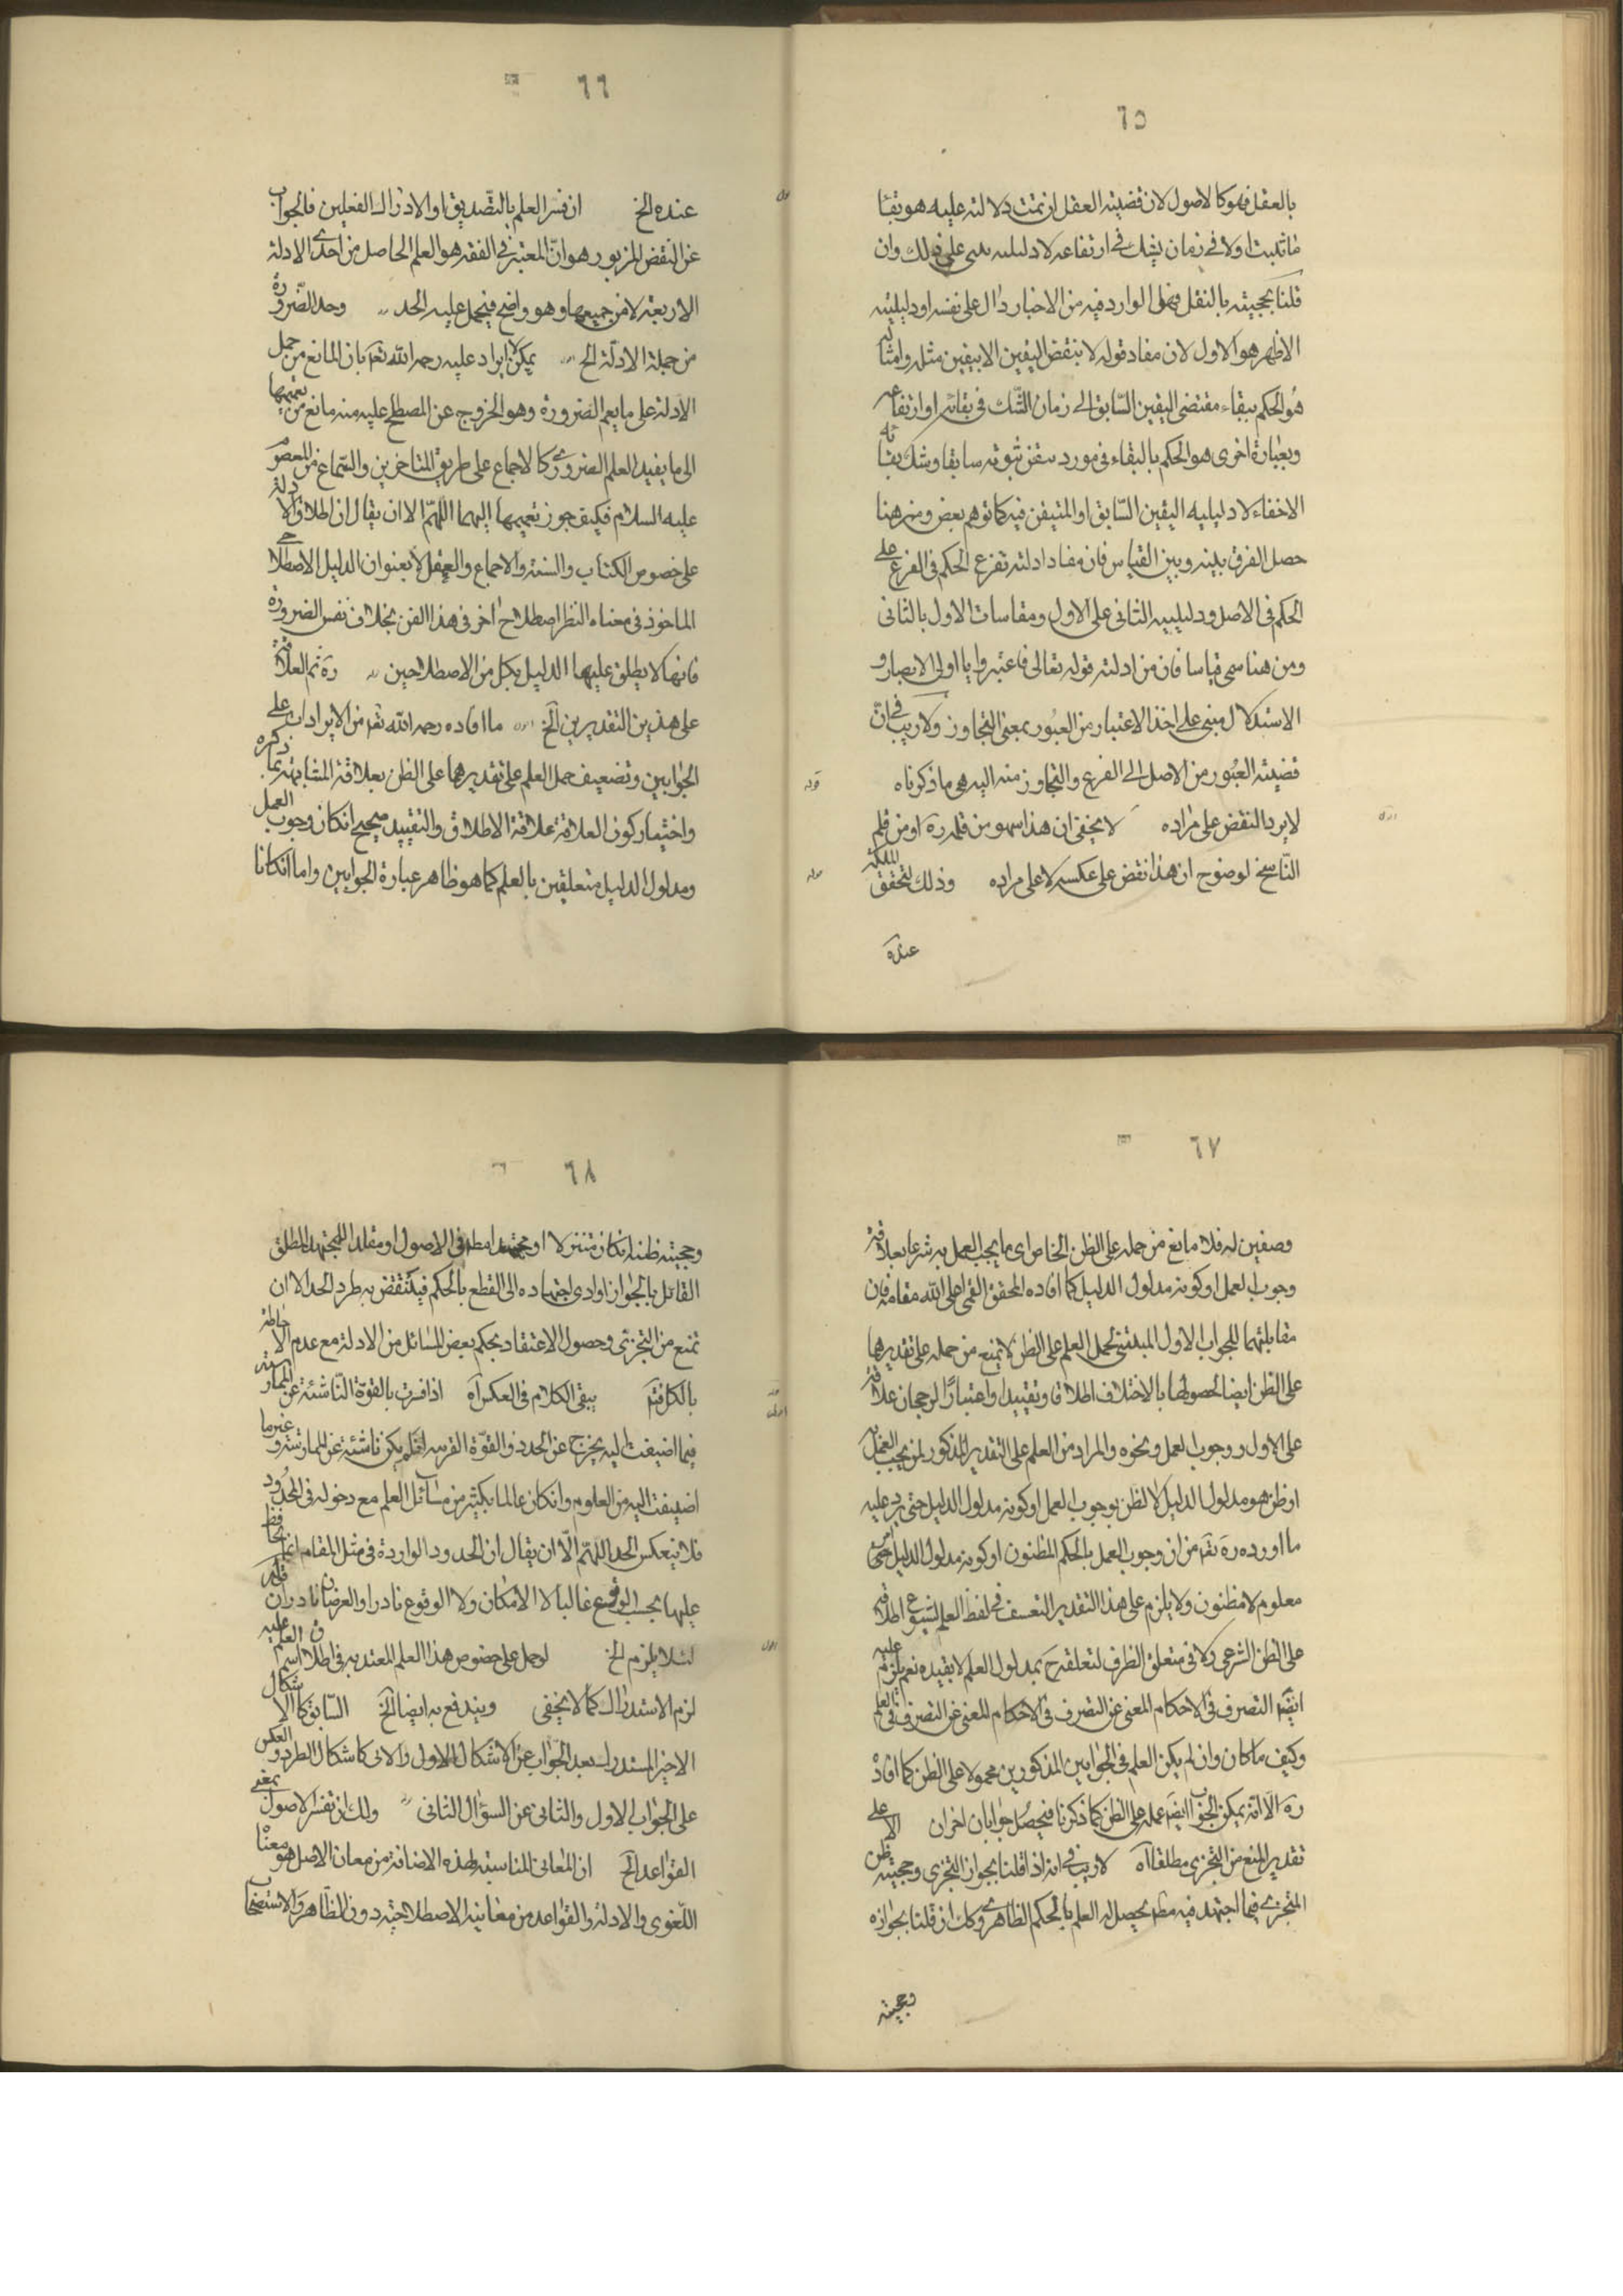 ٦٥
بالعقل فهو كالاصول لان قضيته العقل ان تمت دلالته عليه هو بقاء
ما ثبت اولا فى زمان يشك فى ارتفاعه لا دليليه على ذلك وان
قلنا بحجيته بالنقل فهل الوارد فيه من الاخبار دال على نفسه او دليليته
الاظهر هو الاول لان مفاد قوله لا ينقض اليقين الا بيقين مثله وامثاله
هو الحكم ببقاء مقتضى اليقين السابق الى زمان الشك فى بقائه او ارتفاعه
وبعبارة اخرى هو الحكم بالبقاء فى مورد تيقن ثبوته سابقا وشك بقائه
لا خفاء لا دليليه اليقين السابق او المتيقن فيه كما توهم بعض ومن هنا
حصل الفرق بينه وبين القياس فان مفاد ادلته تفرع الحكم فى الفرع على
الحكم فى الاصل ودليليه الثانى على الاول ومقاسات الاول بالثانى
ومن هنا سمى قياسا فان من ادلته قوله تعالى فاعتبروا يا اولى الابصار و
الاستدلال مبنى على اخذ الاعتبار من العبور بمعنى التجاوز ولا ريب فى ان
قضيته العبور من الاصل الى الفرع والتجاوز منه اليه هى ما ذكرناه قوله
لا يرد النقض على مراده لا يخفى ان هذا سهو من قلمه ره او من قلم
الناسخ لوضوح ان هذا نقض على عكسه لا على مراده وذلك لتحقق الملكة
عنده
٦٦
عنده الخ ان فسر العلم بالتصديق او الادراك الفعلين فالجواب
عن النقض المزبور هو ان المعتبر فى الفقه هو العلم الحاصل من احدى الادلة
الاربعة لا من جميعها وهو واضح فيحمل عليه الحد وحد الضرورة
من جملة الادلة الخ يمكن ايراد عليه رحمه الله تعم بان المانع من حمل
الادلة على ما يعم الضرورة وهو الخروج عن المصطلح عليه منه مانع من تعميمها
الى ما يفيد العلم الضرورى كالاجماع على طريق المتاخرين والسماع من المعصوم
عليه السلام فكيف جوز تعميمها اليهما اللهم الا ان يقال ان اطلاق الادلة
على خصوص الكتاب والسنة والاجماع والعقل لا بعنوان الدليل الاصطلاحى
الماخوذ فى معناه النظر اصطلاح اخر فى هذا الفن بخلاف نفس الضرورة
فانها لا يطلق عليها الدليل بكل من الاصطلاحين ره ثم العلاقة
على هذين التقديرين الخ ما افاده رحمه الله تعم من الايراد على
الجوابين وتضعيف حمل العلم على تقديرهما على الظن بعلاقة المشابهة بما ذكره
واختيار كون العلاقة علاقة الاطلاق والتقييد صحيح ان كان وجوب العمل
ومدلول الدليل متعلقين بالعلم كما هو ظاهر عبارة الجوابين واما ان كانا
٦٧
وصفين له فلا مانع من حمله على الظن الخاص اى ما يجب العمل به شرعا بعلاقة
وجوب العمل او كونه مدلول الدليل كما افاده المحقق القمى اعلى الله مقامه فان
مقابلتهما للجواب الاول المبتنى لحمل العلم على الظن لا تمنع من حمله على تقديرهما
على الظن ايضا لحصولها بالاختلاف اطلاقا وتقييدا واعتبارا لرجحان علاقة
على الاول ووجوب العمل ونحوه والمراد من العلم على التقدير المذكور لمن يجب العمل به
او ظن هو مدلول الدليل لا لظن بوجوب العمل او كونه مدلول الدليل حتى يرد عليه
ما اورده ره تعم من ان وجوب العمل بالحكم المظنون او كونه مدلول الدليل
معلوم لا مظنون ولا يلزم على هذا التقدير التعسف فى لفظ العلم لشيوع اطلاقه
على الظن الشرعى ولا فى متعلق الظرف لتعلقه ح بمدلول العلم لا بقيده نعم يلزم عليه
ايضا التصرف فى الاحكام المعنى عن التصرف فى الاحكام المعنى عن التصرف فى العلم
وكيف ما كان وان لم يكن العلم فى الجوابين المذكورين محمولا على الظن كما افاده
ره الا انه يمكن الجواب ايضا عمله على الظن كما ذكرنا فيحصل جوابان اخران الا على
تقدير المنع من التجزى مطلقا اه لا ريب فى انه اذا قلنا بجواز التجزى وحجيته ظن
المتجزى فيما اجتهد فيه مطم يحصل له العلم بالحكم الظاهرى وكك ان قلنا بجوازه
وحجيته
٦٨
وحجيته ظنه ان كان متنزلا او مجتهدا مطم فى الاصول او مقلدا للمجتهد المطلق
القائل بالجواز او ادى اجتهاده الى القطع بالحكم فينتقض به طرد الحد الا ان
تمنع من التجزى وحصول الاعتقاد بحكم بعض المسائل من الادلة مع عدم الاحاطة
بالكل فتم يبقى الكلام فى العكس اه اذا فسرت بالقوة الناشئة عن الممارسة
فيما اضيفت اليه يخرج عن الحدد والقوة القريبة اذا لم يكن ناشئة عن الممارسة و غيرما
اضيفت اليه من العلوم وان كان عالما بكثير من مسائل العلم مع دخوله فى المحدود
فلا ينعكس الحد اللهم الا ان يقال ان الحدود الواردة فى مثل المقام انما يحافظ
عليها بحسب الوقوع غالبا لا الامكان ولا الوقوع نادرا والفرضان نادران
لئلا يلزم الخ لو حمل على خصوص هذا العلم المعتد به فى اطلاق اسم العلم عليه
لزم الاستدراك كما لا يخفى ويندفع به ايضا الخ السابق كالاشكال
الاخير المستدرك بعد الجواب عن الاشكال الاول والاتى كاشكال الطرد والعكس
على الجواب الاول والثانى عن السؤال الثانى ولك ان تفسر الاصول بمعنى
القواعد الخ ان المعانى المناسبة لهذه الاضافة من معان الاصل هو معناه
اللغوى والادلة والقواعد من معانيه الاصطلاحية دون الظاهر والاستصحاب